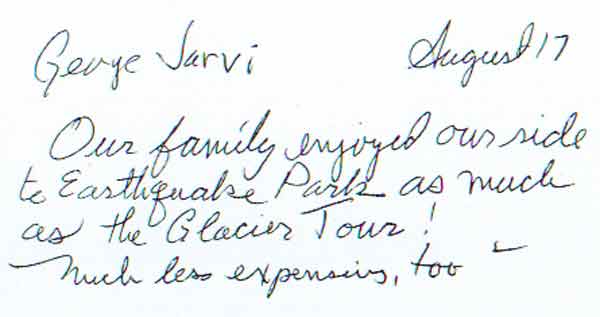 George Jarvi August 17
Our family enjoyed our ride
to Earthquake Park as much
as the Glacier Tour!
Much less expensive, too